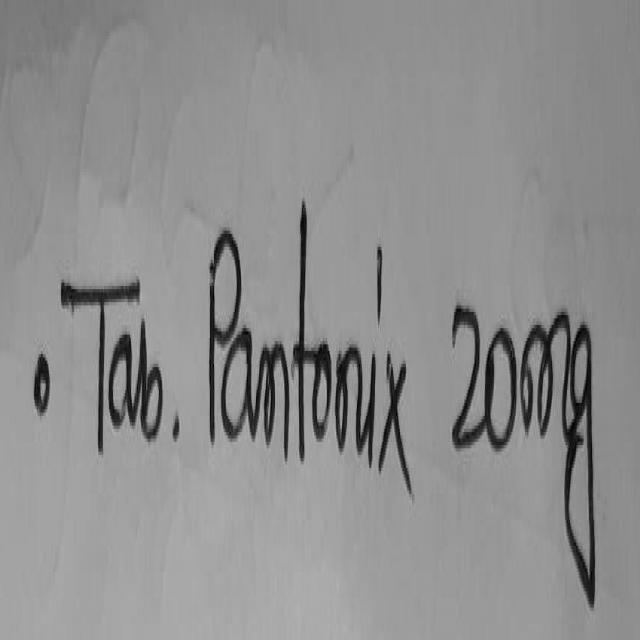 • Tab. Pantonix 20mg